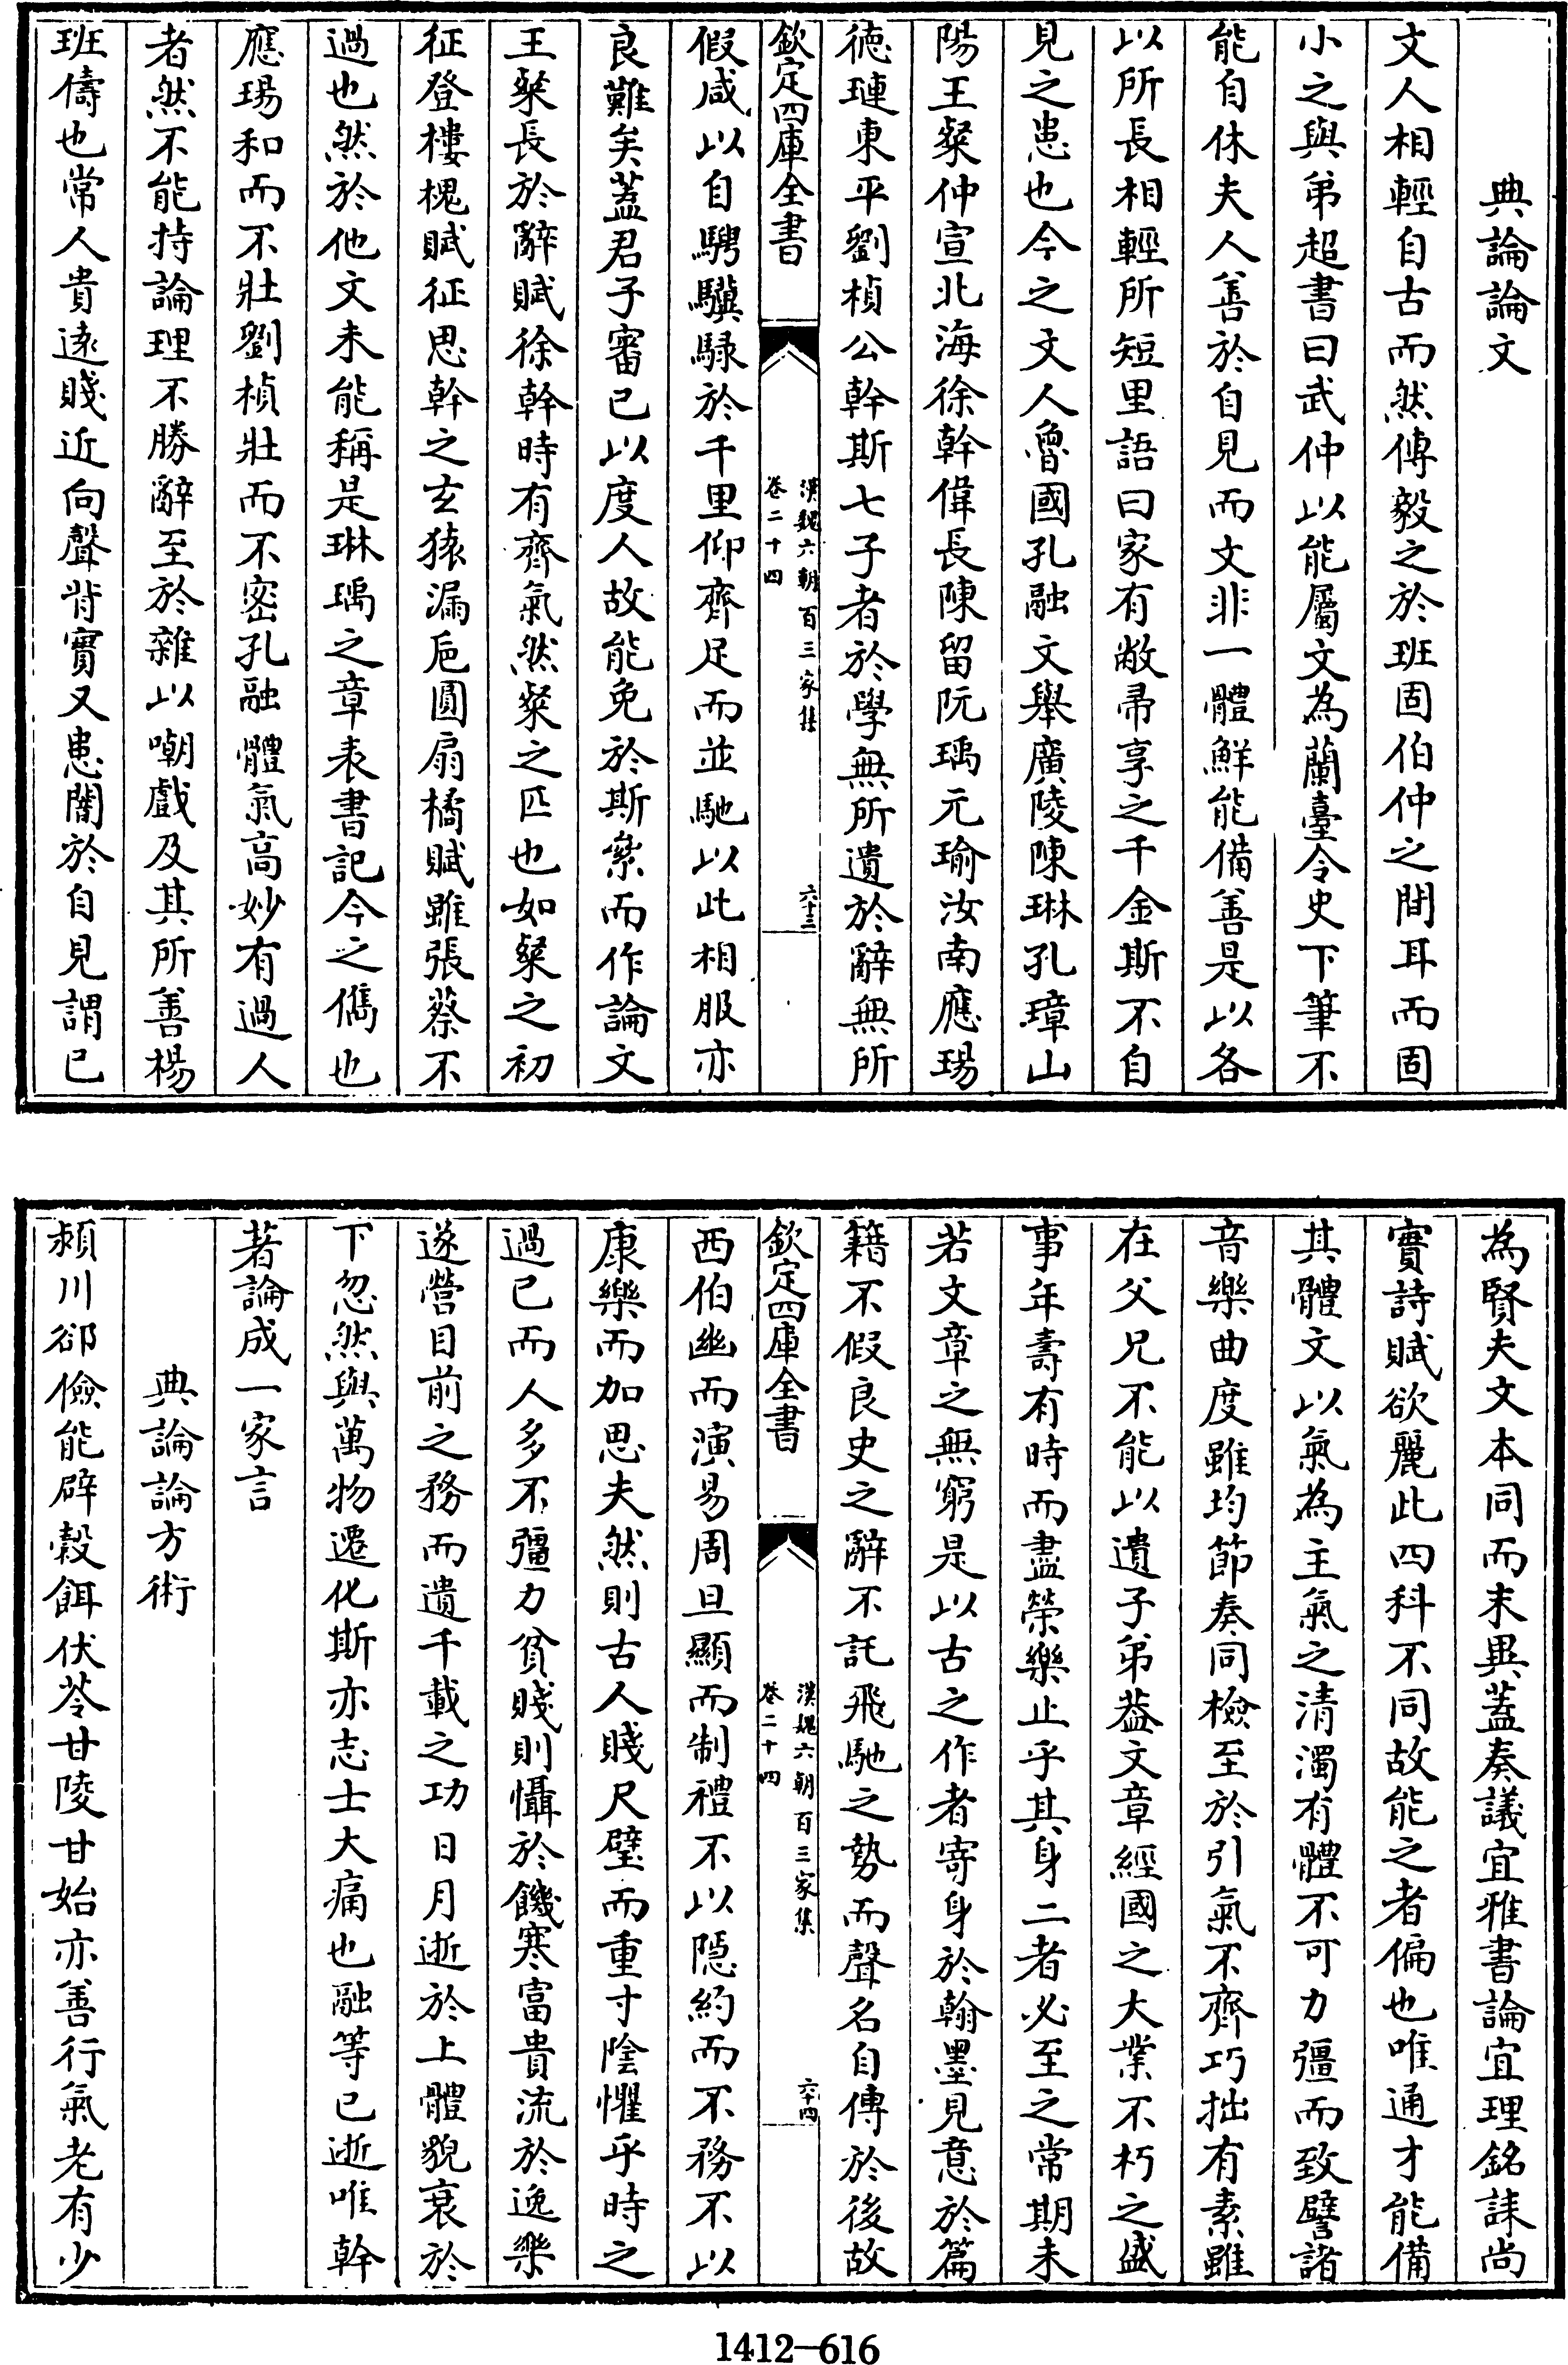 典論論文
文人相輕自古而然傅毅之於班固伯仲之間耳而固
小之與弟超書曰武仲以能屬文為蘭臺令史下筆不
能自休夫人善於自見而文非一體鮮能備善是以各
以所長相輕所短里語曰家有敝帚享之千金斯不自
見之患也今之文人魯國孔融文舉廣陵陳琳孔璋山
陽王粲仲宣北海徐幹偉長陳留阮瑀元瑜汝南應瑒
德璉東平劉楨公幹斯七子者於學無所遺於辭無所
欽定四庫全書
漢魏六朝百三家集
卷二十四
六十三
假咸以自騁驥騄於千里仰齊足而並馳以此相服亦
良難矣蓋君子審己以度人故能免於斯累而作論文
王粲長於辭賦徐幹時有齊氣然粲之匹也如粲之初
征登樓槐賦征思幹之玄猿漏巵圓扇橘賦雖張蔡不
過也然於他文未能稱是琳瑀之章表書記今之儁也
應瑒和而不壯劉楨壯而不密孔融體氣高妙有過人
者然不能持論理不勝辭至於雜以嘲戲及其所善楊
班儔也常人貴遠賤近向聲背實又患闇於自見謂己
為賢夫文本同而末異蓋奏議宜雅書論宜理銘誄尚
實詩賦欲麗此四科不同故能之者偏也唯通才能備
其體文以氣為主氣之清濁有體不可力彊而致譬諸
音樂曲度雖均節奏同檢至於引氣不齊巧拙有素雖
在父兄不能以遺子弟蓋文章經國之大業不朽之盛
事年壽有時而盡榮樂止乎其身二者必至之常期未
若文章之無窮是以古之作者寄身於翰墨見意於篇
籍不假良史之辭不託飛馳之勢而聲名自傳於後故
欽定四庫全書
漢魏六朝百三家集
卷二十四
六十四
西伯幽而演易周旦顯而制禮不以隱約而不務不以
康樂而加思夫然則古人賤尺璧而重寸陰懼乎時之
過已而人多不彊力貧賤則懾於饑寒富貴流於逸樂
遂營目前之務而遺千載之功日月逝於上體貌衰於
下忽然與萬物遷化斯亦志士大痛也融等已逝唯幹
著論成一家言
典論論方術
潁川郤儉能辟穀餌伏苓甘陵甘始亦善行氣老有少
1412—616